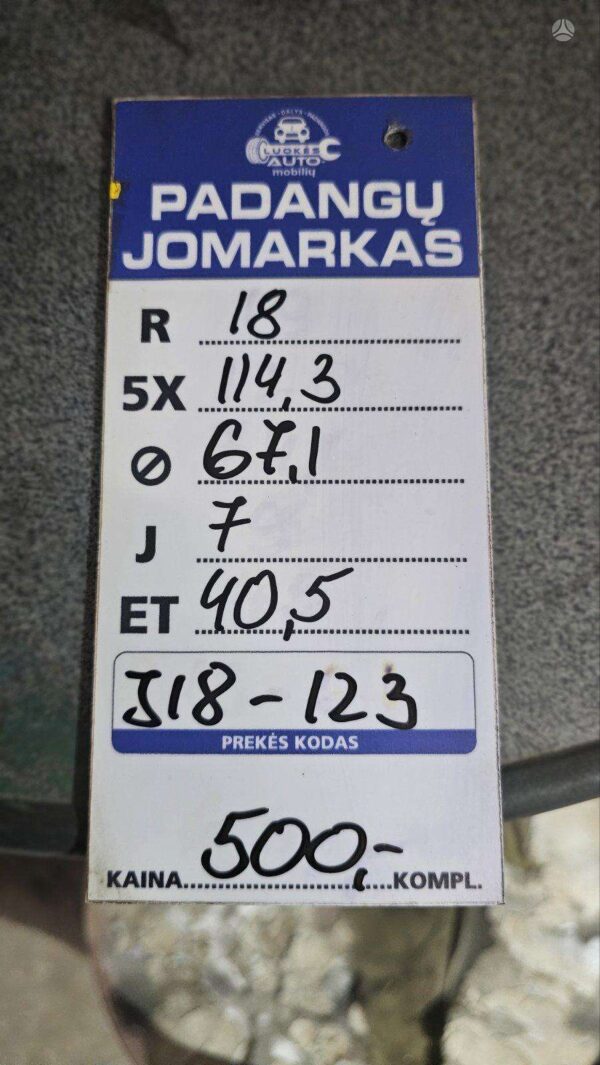 LUOKĖS
AUTO
mobilių
PADANGŲ
JOMARKAS
R 18
5X 114,3
⌀ 67,1
J 7
ET 40,5
J18-123
PREKĖS KODAS
500,-
KAINA KOMPL.